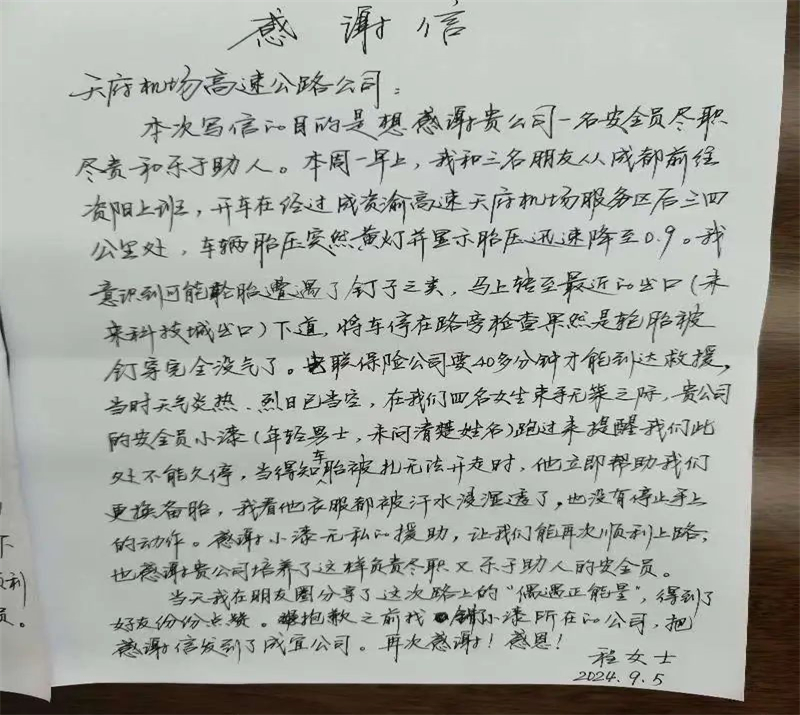 感谢信
天府机场高速公路公司：
本次写信的目的是想感谢贵公司一名安全员尽职
尽责和乐于助人。本周一早上，我和三名朋友从成都前往
资阳上班，开车在经过成资渝高速天府机场服务区后三四
公里处，车辆胎压突然黄灯并显示胎压迅速降至0.9。我
意识到可能轮胎遭遇了钉子之类，马上转至最近的出口（未
来科技城出口）下道，将车停在路旁检查果然是轮胎被
钉穿完全没气了。电联保险公司要40多分钟才能到达救援，
当时天气炎热、烈日已当空，在我们四名女生束手无策之际，贵公司
的安全员小漆（年轻男士，未问清楚姓名）跑过来提醒我们此
处不能久停，当得知车胎被扎无法开走时，他立即帮助我们
更换备胎，我看他衣服都被汗水浸湿透了，也没有停止手上
的动作。感谢小漆无私的援助，让我们能再次顺利上路，
也感谢贵公司培养了这样负责尽职又乐于助人的安全员。
当天我在朋友圈分享了这次路上的“偶遇正能量”，得到了
好友份份点赞。抱歉之前找错小漆所在的公司，把
感谢信发到了成宜公司。再次感谢！感恩！
程女士
2024.9.5
下
顺利
员。